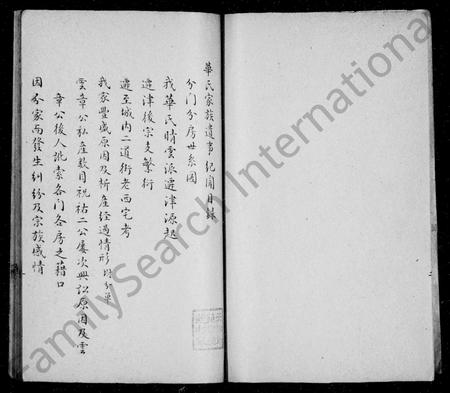 華氏家族遺事紀聞目錄
分门分房世系图
我華氏晴雲派遷津源起
遷津後宗支繁衍
遷至城内二道街老西宅考
我家豐盛原因及析產經過情形 附分單
雲章公私產数目祝祜二公屡次興訟原因及雲
章公後人訛索各门各房之藉口
因分家而發生糾紛及宗族感情
FamilySearch International